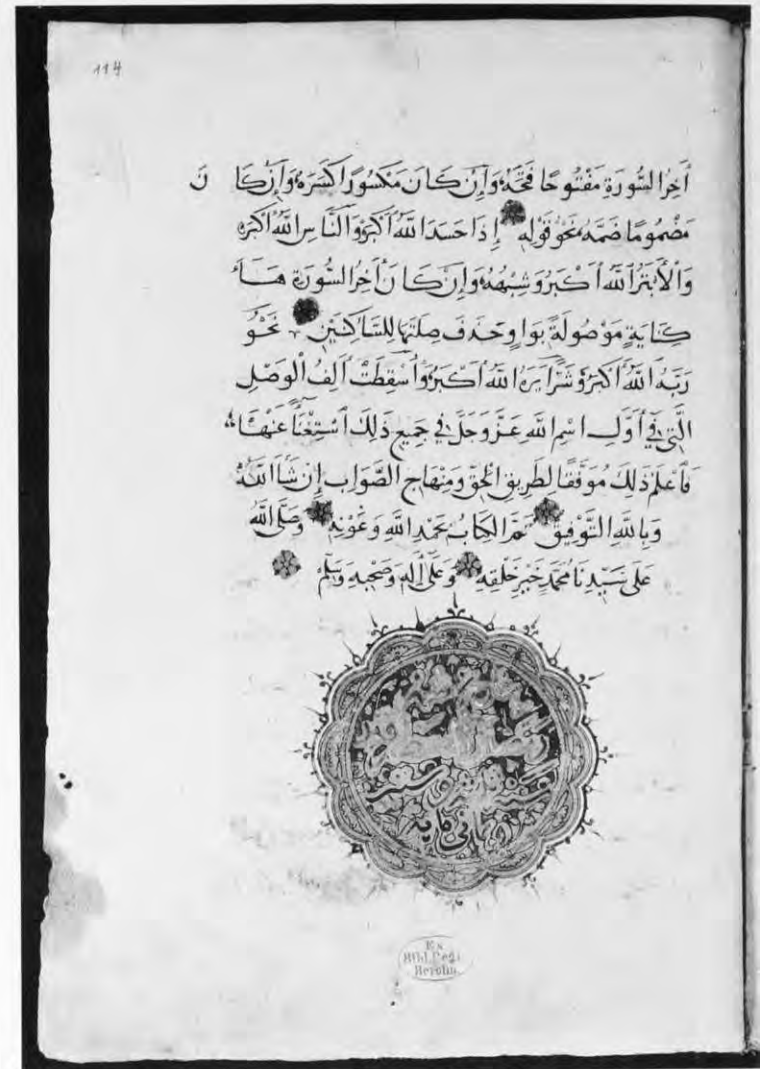 114
أَخِرُ السُّورَةِ مَفْتُوحًا فَتَحَهُ وَإِنْ كَانَ مَكْسُورًا كَسَرَهُ وَإِنْ كَا نَ
مَضْمُومًا ضَمَّهُ نَحْوُ قَوْلِهِ إِذَا حَسَدَ اللَّهُ أَكْبَرُ وَالنَّاسِ اللَّهُ أَكْبَرُ
وَالْأَبْتَرُ اللَّهُ أَكْبَرُ وَشِبْهُهُ وَإِنْ كَانَ أَخِرُ السُّورَةِ هَاءَ
كِنَايَةٍ مَوْصُولَةً بِوَاوٍ حَذَفَ صِلَتَهَا لِلسَّاكِنَيْنِ نَحْوُ
رَبَّهُ اللَّهُ أَكْبَرُ وَشَرًّا يَرَهُ اللَّهُ أَكْبَرُ وَأُسْقِطَتْ أَلِفُ الْوَصْلِ
الَّتِي فِي أَوَّلِ اسْمِ اللَّهِ عَزَّ وَجَلَّ فِي جَمِيعِ ذَلِكَ اسْتِغْنَاءً عَنْهَا
فَاعْلَمْ ذَلِكَ مُوَفَّقًا لِطَرِيقِ الْحَقِّ وَمِنْهَاجِ الصَّوَابِ إِنْ شَاءَ اللَّهُ
وَبِاللَّهِ التَّوْفِيقُ تَمَّ الْكِتَابُ بِحَمْدِ اللَّهِ وَعَوْنِهِ وَصَلَّى اللَّهُ
عَلَى سَيِّدِنَا مُحَمَّدٍ خَيْرِ خَلْقِهِ وَعَلَى أَلِهِ وَصَحْبِهِ وَسَلَّمَ
Ex
Bibl. Regia
Berolin.